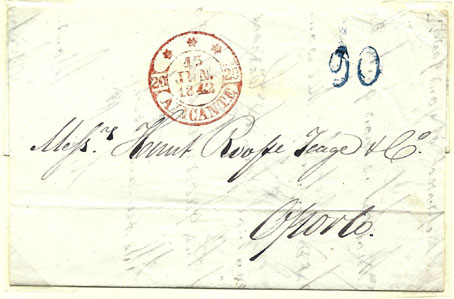 15
JUN.
1842
20 20
ALICANTE
90
Messrs Hunt Roope Teage & Co.
Oporto.